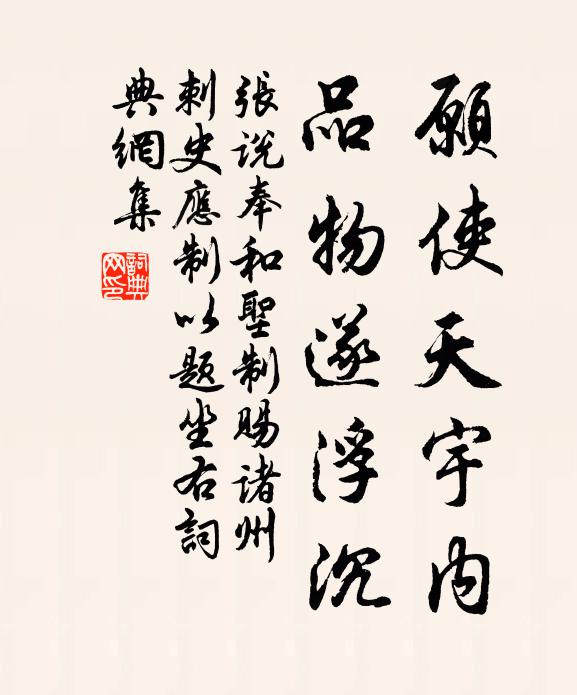 願使天宇内
品物遂浮沉
張説奉和聖制賜諸州
刺史應制以題坐右詞
典網集
詞典网印